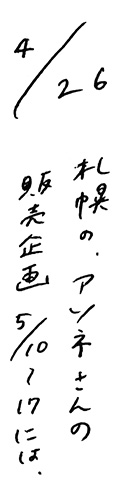 4/26
札幌の、アンネさんの
販売企画 5/10~17には、